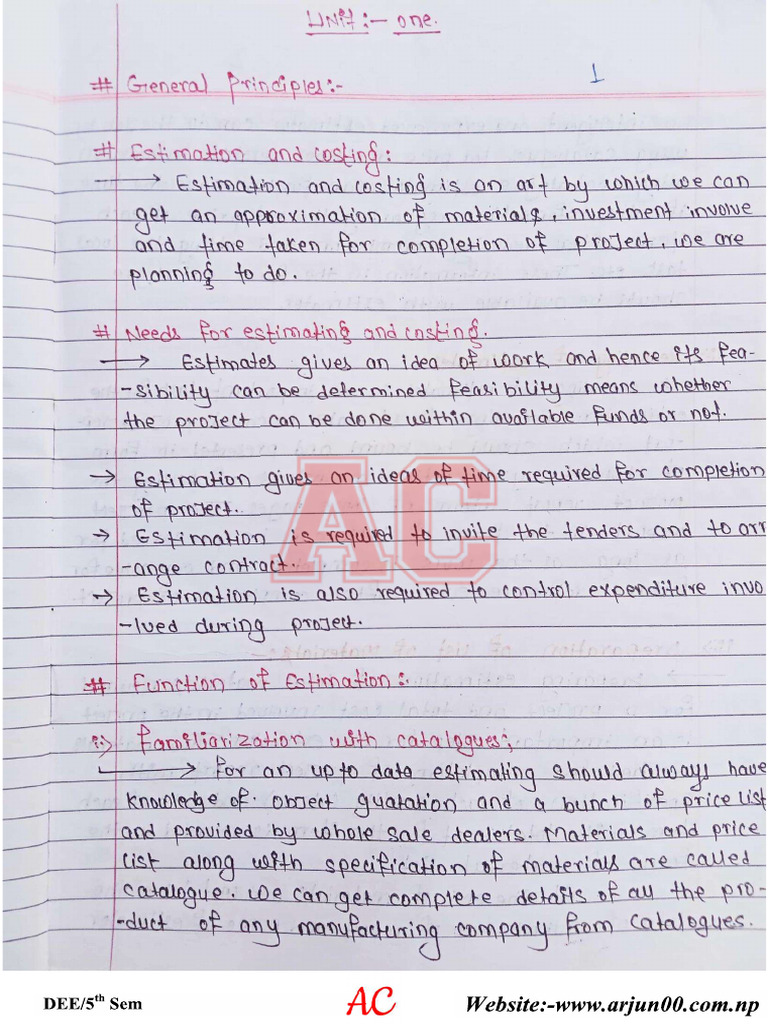 Unit:- one.
1
# General Principles:-
# Estimation and costing:
→ Estimation and costing is an art by which we can
get an approximation of materials, investment involve
and time taken for completion of project, we are
planning to do.
# Needs for estimating and costing.
→ Estimates gives an idea of work and hence its fea-
-sibility can be determined feasibility means whether
the project can be done waithin available funds or not.
→ Estimation gives an ideas of time required for completion
of project.
→ Estimation is required to invite the tenders and to arr
-ange contract.
→ Estimation is also required to control expenditure invo
-lved during project.
# Function of Estimation:.
i:> familiarization with catalogues;
→ for an upto data estimating should always have
knowledge of object quatation and a bunch of price list
and provided by whole sale dealers. Materials and price
list along with specification of materials are called
catalogue. We can get complete details of all the pro-
-duct of any manufacturing company from catalogues.
AC
DEE/5th Sem AC Website:-www.arjun00.com.np